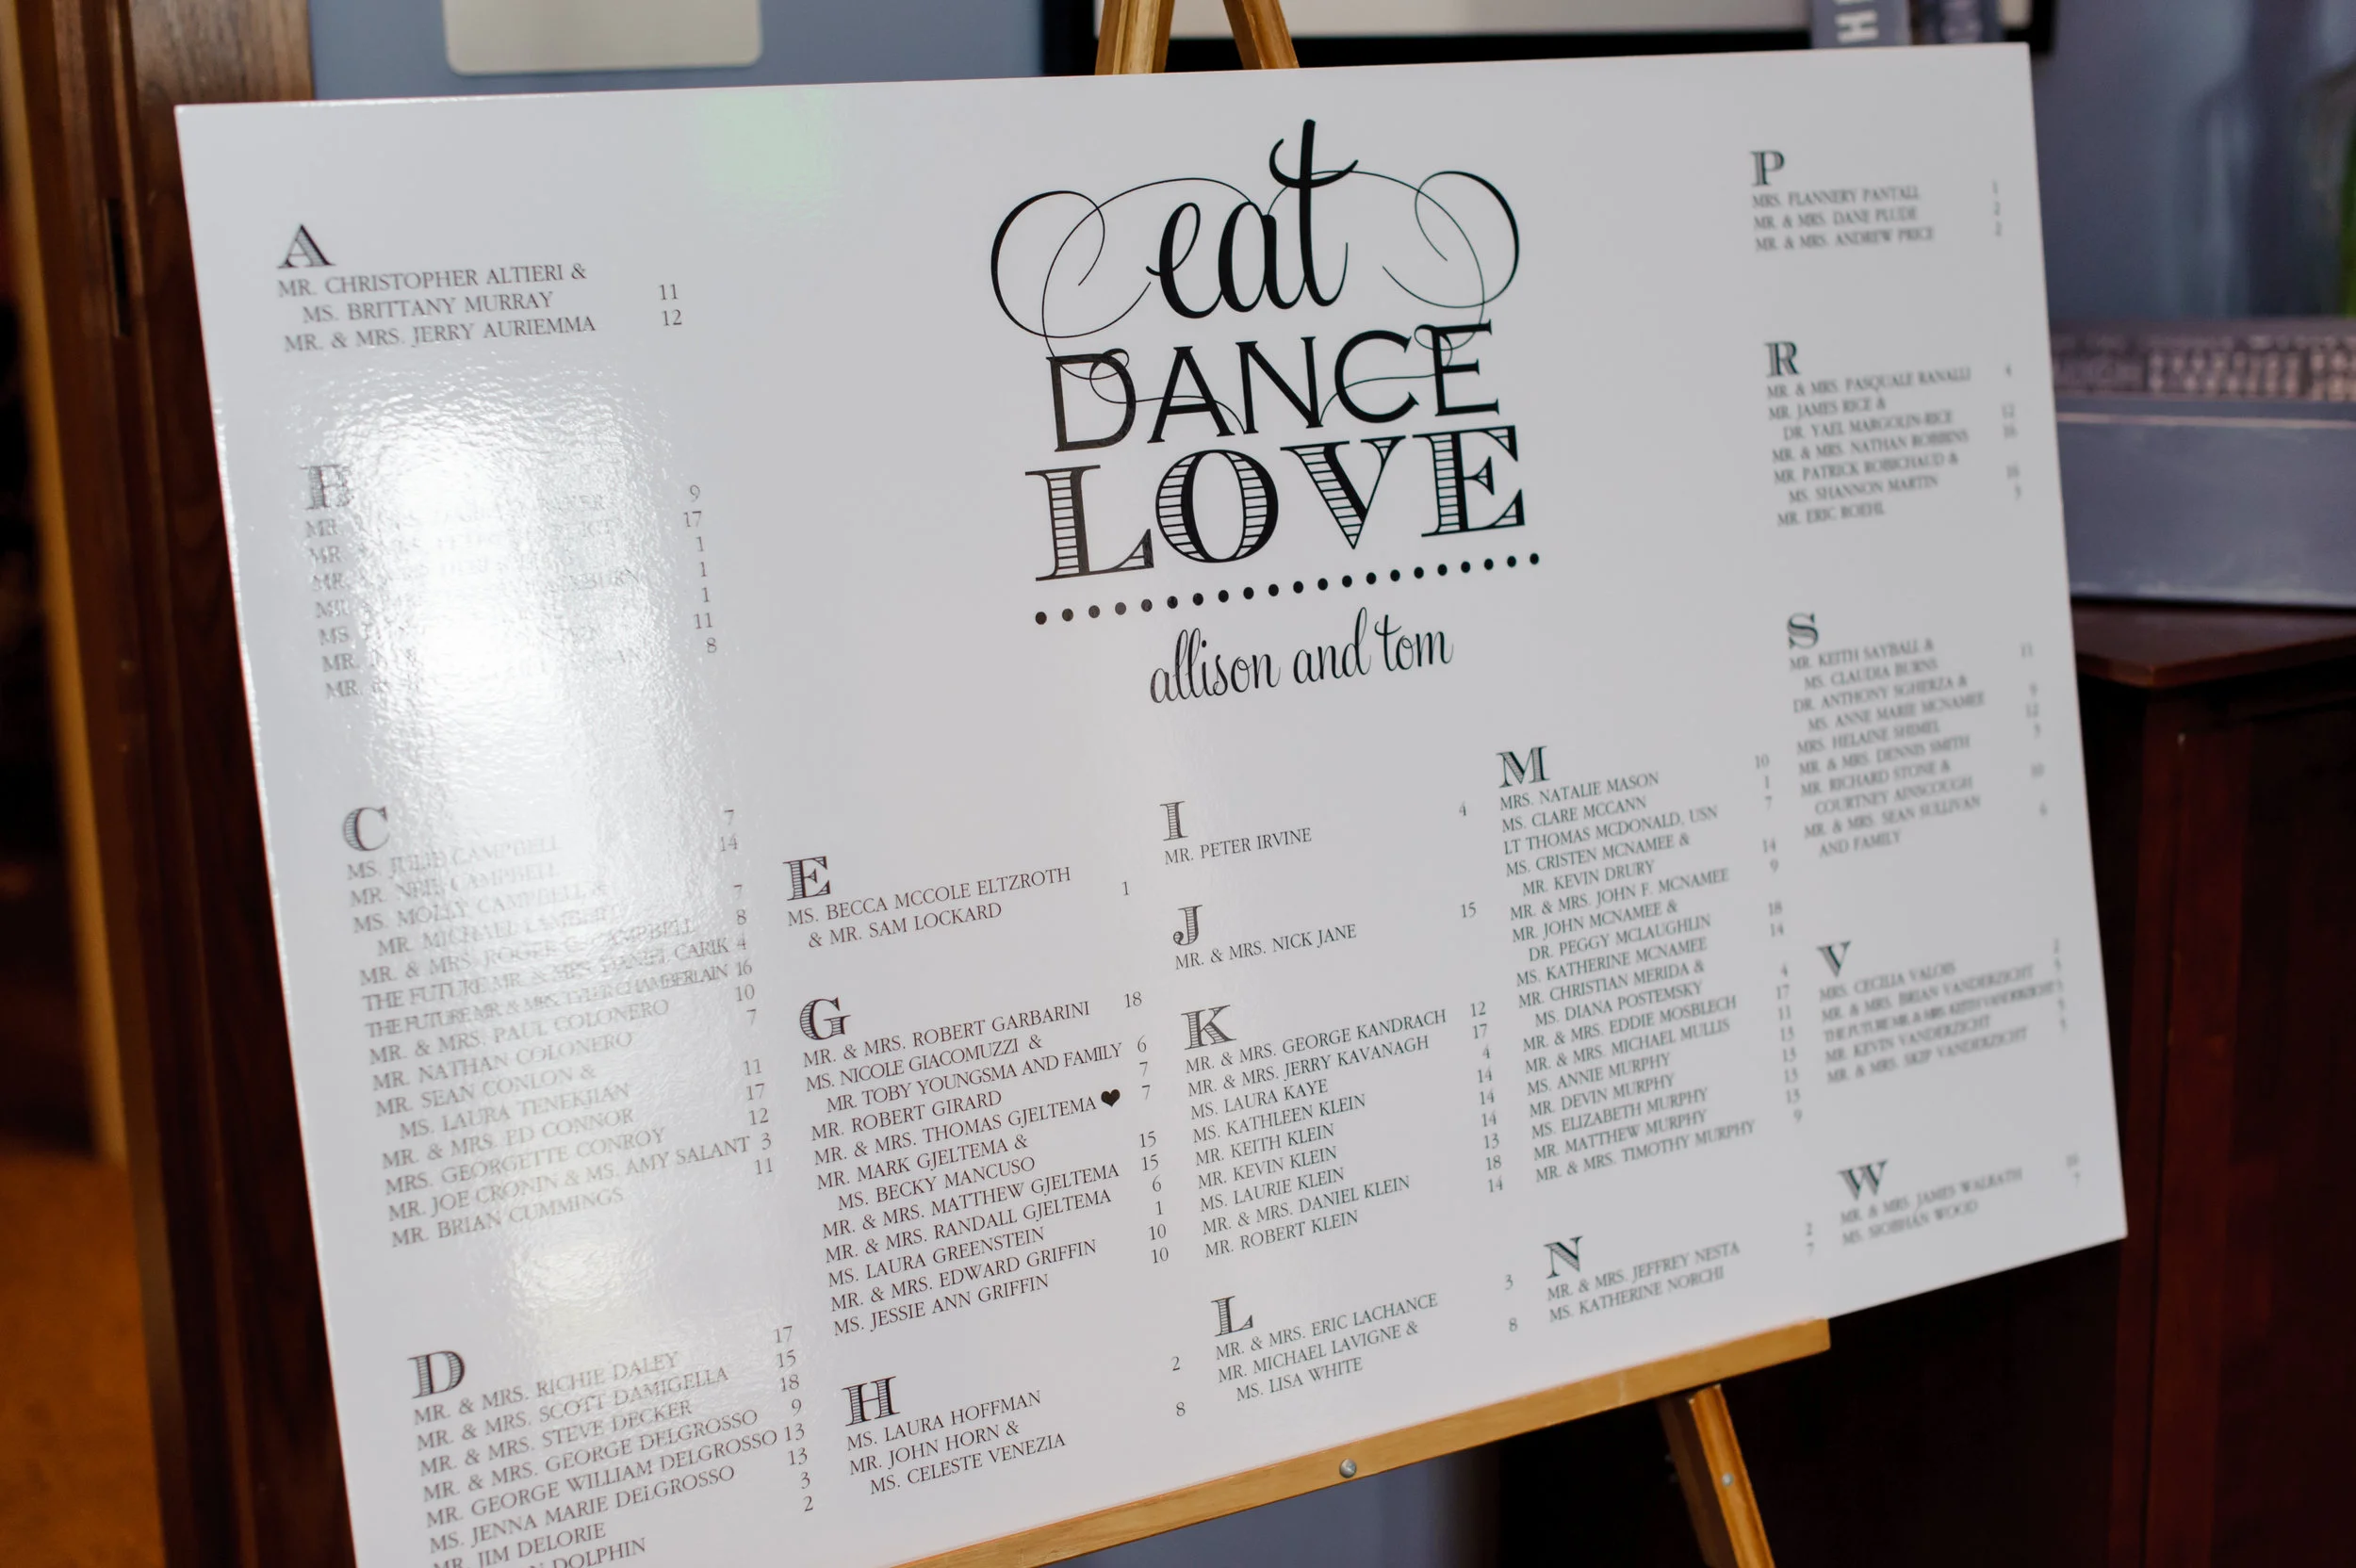 eat
DANCE
LOVE
allison and tom
A
MR. CHRISTOPHER ALTIERI &
MS. BRITTANY MURRAY 11
MR. & MRS. JERRY AURIEMMA 12
B
MR. 9
MR. 17
MR. 1
MR. 1
MS. 1
MR. 11
MR. 8
C
MS. JULIE CAMPBELL 7
MR. NEIL CAMPBELL 14
MS. MOLLY CAMPBELL &
MR. MICHAEL LAMBERT 7
MR. & MRS. ROGER G. CAMPBELL 8
THE FUTURE MR. & MRS. DANIEL CARIK 4
THE FUTURE MR & MRS. TYLER CHAMBERLAIN 16
MR. & MRS. PAUL COLONERO 10
MR. NATHAN COLONERO 7
MR. SEAN CONLON &
MS. LAURA TENEKJIAN 11
MR. & MRS. ED CONNOR 17
MRS. GEORGETTE CONROY 12
MR. JOE CRONIN & MS. AMY SALANT 3
MR. BRIAN CUMMINGS 11
D
MR. & MRS. RICHIE DALEY 17
MR. & MRS. SCOTT DAMIGELLA 15
MR. & MRS. STEVE DECKER 18
MR. & MRS. GEORGE DELGROSSO 9
MR. GEORGE WILLIAM DELGROSSO 13
MS. JENNA MARIE DELGROSSO 13
MR. JIM DELORIE 3
DOLPHIN 2
E
MS. BECCA MCCOLE ELTZROTH
& MR. SAM LOCKARD 1
G
MR. & MRS. ROBERT GARBARINI 18
MS. NICOLE GIACOMUZZI &
MR. TOBY YOUNGSMA AND FAMILY 6
MR. ROBERT GIRARD 7
MR. & MRS. THOMAS GJELTEMA ♥ 7
MR. MARK GJELTEMA &
MS. BECKY MANCUSO 15
MR. & MRS. MATTHEW GJELTEMA 15
MR. & MRS. RANDALL GJELTEMA 6
MS. LAURA GREENSTEIN 1
MR. & MRS. EDWARD GRIFFIN 10
MS. JESSIE ANN GRIFFIN 10
H
MS. LAURA HOFFMAN 2
MR. JOHN HORN &
MS. CELESTE VENEZIA 8
I
MR. PETER IRVINE 4
J
MR. & MRS. NICK JANE 15
K
MR. & MRS. GEORGE KANDRACH 12
MR. & MRS. JERRY KAVANAGH 17
MS. LAURA KAYE 4
MS. KATHLEEN KLEIN 14
MR. KEITH KLEIN 14
MR. KEVIN KLEIN 14
MS. LAURIE KLEIN 13
MR. & MRS. DANIEL KLEIN 18
MR. ROBERT KLEIN 14
L
MR. & MRS. ERIC LACHANCE 3
MR. MICHAEL LAVIGNE &
MS. LISA WHITE 8
M
MRS. NATALIE MASON 10
MS. CLARE MCCANN 1
LT THOMAS MCDONALD, USN 7
MS. CRISTEN MCNAMEE &
MR. KEVIN DRURY 14
MR. & MRS. JOHN F. MCNAMEE 9
MR. JOHN MCNAMEE &
DR. PEGGY MCLAUGHLIN 18
MS. KATHERINE MCNAMEE 14
MR. CHRISTIAN MERIDA &
MS. DIANA POSTEMSKY 4
MR. & MRS. EDDIE MOSBLECH 17
MR. & MRS. MICHAEL MULLIS 11
MS. ANNIE MURPHY 13
MR. DEVIN MURPHY 13
MS. ELIZABETH MURPHY 13
MR. MATTHEW MURPHY 13
MR. & MRS. TIMOTHY MURPHY 9
N
MR. & MRS. JEFFREY NESTA 2
MS. KATHERINE NORCHI 7
P
MRS. FLANNERY PANTALL 1
MR. & MRS. DANE PLUDE 2
MR. & MRS. ANDREW PRICE 2
R
MR. & MRS. PASQUALE RANALLI 4
MR. JAMES RICE &
DR. YAEL MARGOLIN-RICE 12
MR. & MRS. NATHAN ROBBINS 16
MR. PATRICK ROBICHAUD &
MS. SHANNON MARTIN 16
MR. ERIC ROEHL
S
MR. KEITH SAYBALL &
MS. CLAUDIA BURNS 11
DR. ANTHONY SGHERZA &
MS. ANNE MARIE MCNAMEE 9
MRS. HELAINE SHIMEL 12
MR. & MRS. DENNIS SMITH
MR. RICHARD STONE &
COURTNEY AINSCOUGH 10
MR. & MRS. SEAN SULLIVAN
AND FAMILY 6
V
MRS. CECILIA VALOIS 2
MR. & MRS. BRIAN VANDERZICHT
THE FUTURE MR. & MRS. KEITH VANDERZICHT
MR. KEVIN VANDERZICHT
MR. & MRS. SKIP VANDERZICHT
W
MR. & MRS. JAMES WALRATH
MS. SIOBHÁN WOOD 7